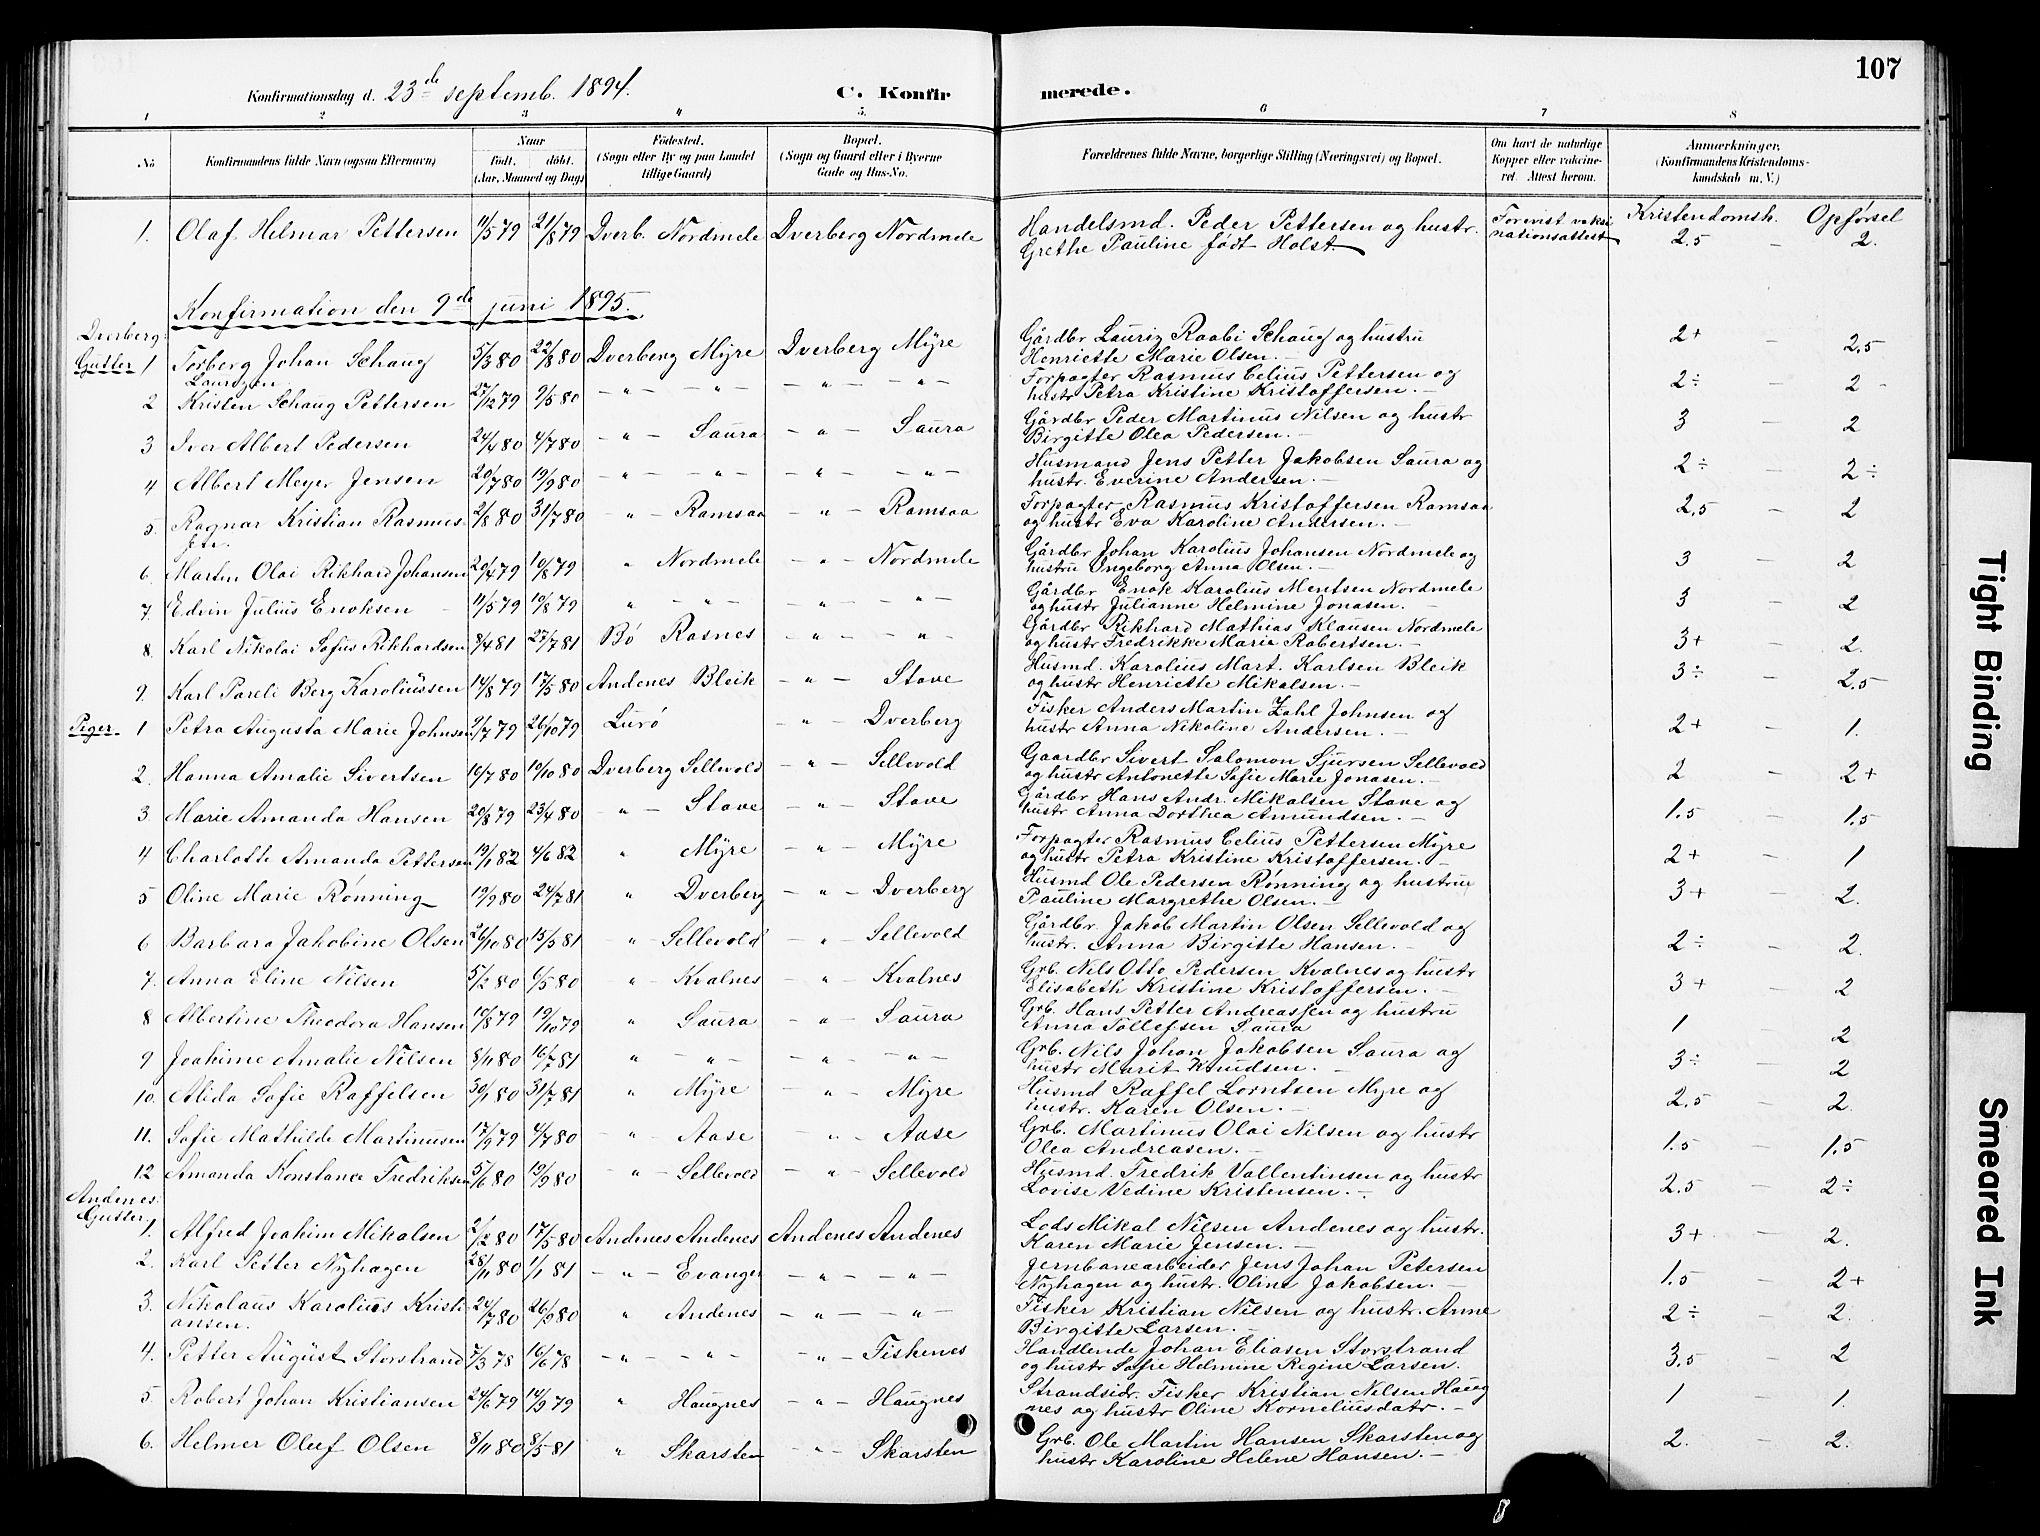 107
Konfirmationsdag d. 23de septemb. 1894. C. Konfir merede.
1 2 3 4 5. 6 7 8
No Konfirmandens fulde Navn (ogsaa Efternavn) Naar født. døbt. (Aar, Maaned og Dag) Fødested. (Sogn eller By og paa Landet tillige Gaard) Bopæl. (Sogn og Gaard eller i Byerne Gade og Hus-No. Forældrenes fulde Navne, borgerlige Stilling (Næringsvei) og Bopæl. Om havt de naturlige Kopper eller vaksineret. Attest herom. Anmærkninger, (Konfirmandens Kristendomskundskab m. V.)
1. Olaf Helmar Pettersen 11/5 79 21/8 79 Dverb. Nordmele Dverberg Nordmele Handelsmd. Peder Pettersen og hustr. Forevist vaksi Kristendomsk. Opførsel
Grethe Pauline født Holst nationsattest 2.5 – 2.
Konfirmation den 9de juni 1895.
Dverberg:
Gutter 1 Torberg Johan Schaug 5/3 80 22/8 80 Dverberg Myre Dverberg Myre Gårdbr Lauriz Raabi Schaug og hustru 2+ – 2.5
Laurizen Henriette Marie Olsen. –
2 Kristen Schaug Pettersen 27/12 79 9/5 80 – " – – " – – " – – " – Forpagter Rasmus Celius Pettersen og 2÷ – 2 -
hustr Petra Kristine Kristoffersen. –
3 Iver Albert Pedersen 24/4 80 4/7 80 – " – Saura – " – Saura Gårdbr Peder Martinus Nilsen og hustr 3 2
Birgitte Olea Pedersen. –
4 Albert Meyer Jensen 20/7 80 19/9 80 – " – – " – – " – – " – Husmand Jens Petter Jakobsen Saura og 2÷ – 2÷
hustr. Everine Andersen. –
5. Ragnar Kristian Rasmus- 2/8 80 31/7 80 – " – Ramsaa – " – Ramsaa Forpagter Rasmus Kristoffersen Ramsaa 2,5 – 2
sen. og hustr Eva Karoline Andersen. –
6. Martin Olai Rikhard Johansen 20/4 79 10/8 79 " Nordmele – " – Nordmele Gårdbr Johan Karolius Johansen Nordmele og 3 – 2
hustru Ingeborg Anna Olsen. –
7. Edvin Julius Enoksen – 11/5 79 10/8 79 " – " – – " – – " – Gårdbr Enok Karolius Mentsen Nordmele 3 2
og hustr Julianne Helmine Jonasen. –
8. Karl Nikolai Sofus Rikhardsen 8/4 81 27/7 81 Bö Rasnes – " – – " – Gårdbr Rikhard Mathias Klausen Nordmele 3+ – 2.
og hustr Fredrikke Marie Robertsen. –
9. Karl Pareli Berg Karoliussen 14/8 79 17/5 80 Andenes Bleik – " – Stave Husmd. Karolius Mart. Karlsen Bleik 3÷ – 2.5
og hustr Henriette Mikalsen. –
Piger. 1 Petra Augusta Marie Johnsen 2/7 79 26/10 79 Lurö – " – Dverberg Fisker Anders Martin Zahl Johnsen og 2+ – 1.
hustr Anna Nikoline Andersen. –
2. Hanna Amalie Sivertsen 16/7 80 10/10 80 Dverberg Sellevold – " – Sellevold Gaardbr Sivert Salomon Sjursen Sellevold 2 – 2+
og hustr Antonette Sofie Marie Jonasen. –
3. Marie Amanda Hansen 20/8 79 23/4 80 – " – Stave – " – Stave Gårdbr Hans Andr. Mikalsen Stave og 1.5 – 1.5
hustr Anna Dorthea Amundsen. –
4 Charlotte Amanda Pettersen 19/1 82 4/6 82 " Myre – " – Myre Forpagter Rasmus Celius Pettersen Myre 2+ – 1
og hustr Petra Kristine Kristoffersen. –
5 Oline Marie Rønning 19/9 80 24/7 81 " Dverberg – " – Dverberg Husmd Ole Pedersen Rønning og hustru 3+ – 2.
Pauline Margrethe Olsen. –
6 Barbara Jakobine Olsen 26/10 80 15/5 81 " Sellevold – " Sellevold Gårdbr. Jakob Martin Olsen Sellevold og 2÷ – 2.
hustr. Anna Birgitte Hansen. –
7. Anna Eline Nilsen 5/2 80 6/5 80 " – Kvalnes – " Kvalnes Grb. Nils Otto Pedersen Kvalnes og hustr 3+ – 2
Elisabeth Kristine Kristoffersen. –
8 Albertine Theodora Hansen 17/8 79 19/10 79 " Saura – " – Saura Grb. Hans Petter Andreassen og hustru 1 2
Anna Tollefsen Saura
9 Joakime Amalie Nilsen 8/11 80 16/7 81 " – " – – " – – " – Grb. Nils Johan Jakobsen Saura og 3÷ – 2
hustr Marit Knudsen. –
10. Alida Sofie Raffelsen 30/1 80 31/7 81 " Myre – " Myre Husmd Raffel Lorntsen Myre og 2.5 – 2.
hustr. Karen Olsen. –
11. Sofie Mathilde Martinusen 17/9 79 4/7 80 " – Aase – " – Aase Grb. Martinus Olai Nilsen og hustr 1.5 – 1.5
Olea Andreasen. –
12 Amanda Konstance Fredriksen 5/6 80 19/9 80 – " – Sellevold – " – Sellevold Husmd. Fredrik Vallentinsen og hustr 2.5 – 2÷
Lovise Vedine Kristensen. –
Andenes:
Gutter 1. Alfred Joakim Mikalsen 2/12 80 17/5 80 Andenes Andenes Andenes Andenes Lods Mikal Nilsen Andenes og hustr. 3+ – 2.
Karen Marie Jensen. –
2. Karl Petter Nyhagen 28/11 80 1/1 81 – " – Evanger – " – – " – Jernbanearbeider Jens Johan Petersen 1.5 – 2+
Nyhagen og hustr. Oline Jakobsen. –
3. Nikolaus Karolius Kristi- 24/7 80 26/9 80 " Andenes – " – – " – Fisker Kristian Nilsen og hustr. Anne 2÷ – 2.
ansen. Birgitte Larsen. –
4. Petter August Storstrand 7/3 78 16/6 78 – " – – " – – " – Fiskenes Handlende Johan Eliasen Storstrand 3.5 – 2
og hustr Sofie Helmine Regine Larsen.
5 Robert Johan Kristiansen 24/6 79 14/9 79 " Haugnes – " – Haugnes Strandsidr. Fisker Kristian Nilsen Haug 1 – 1.
nes og hustr Oline Korneliusdatr. –
6. Helmer Oluf Olsen 8/11 80 8/5 81 " Skarsten – " – Skarsten Grb. Ole Martin Hansen Skarsten og 2. – 2.
hustr Karoline Helene Hansen. –
Tight Binding
Smeared Ink